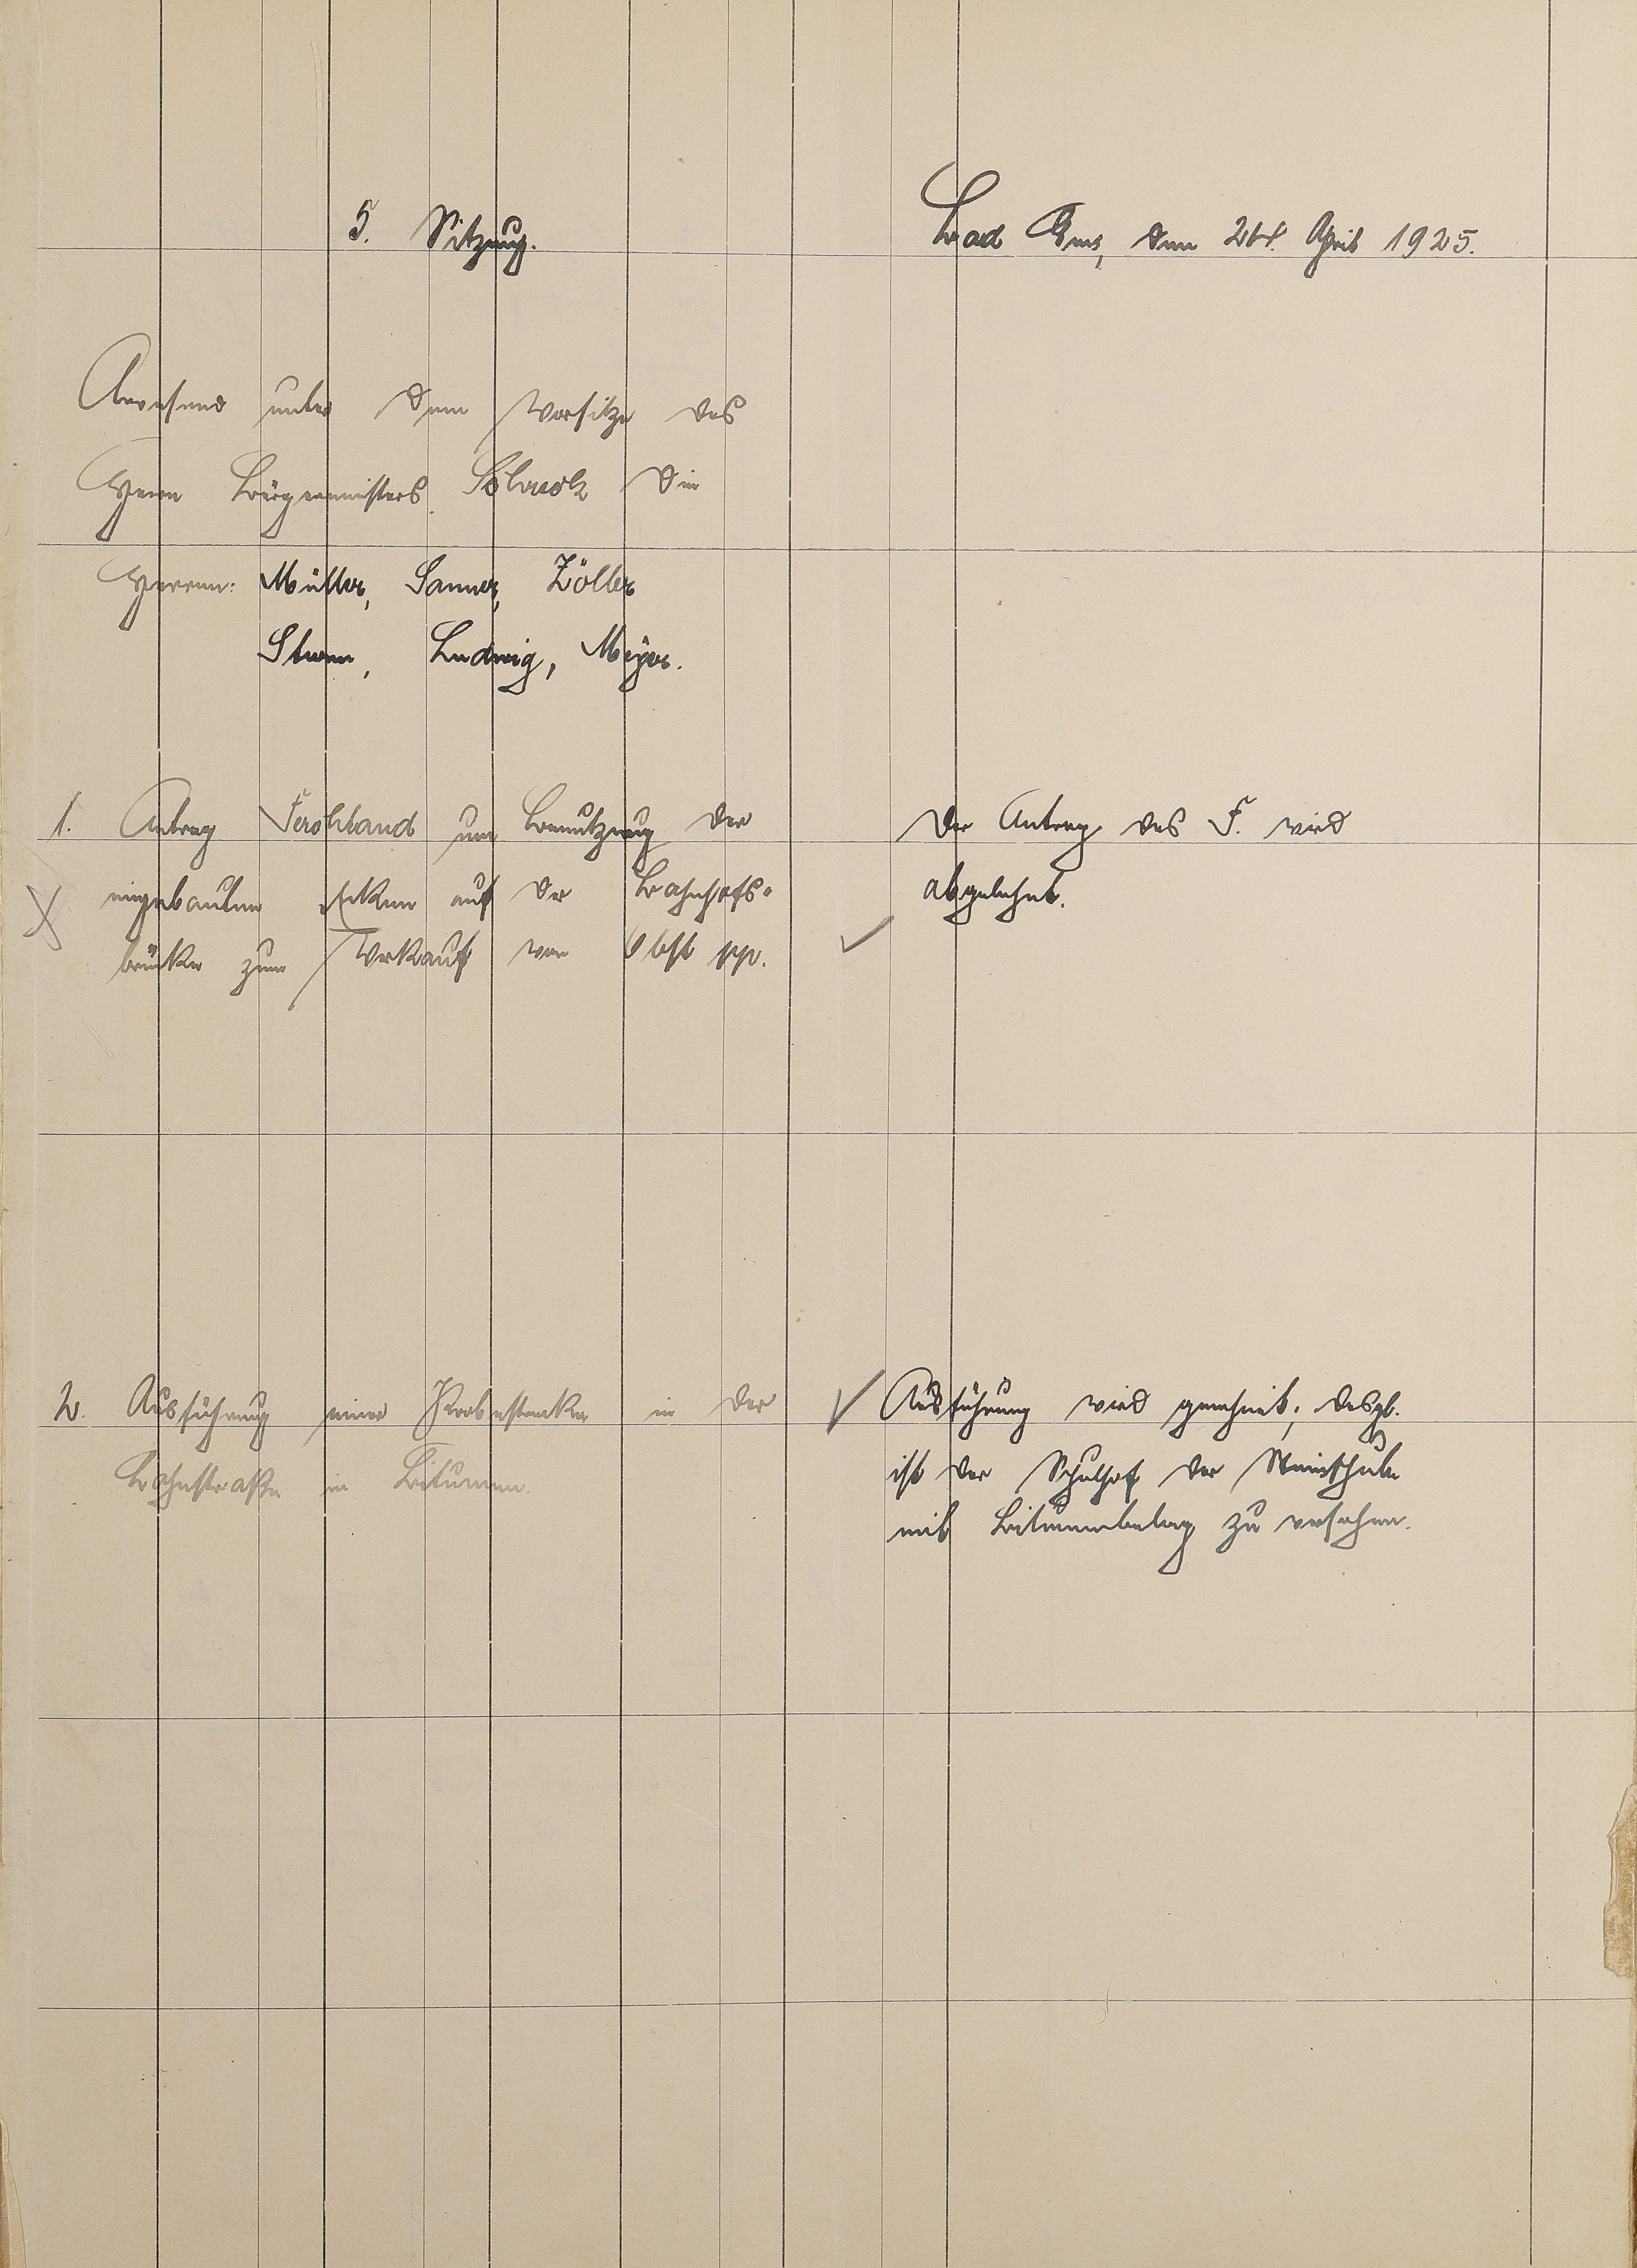 5. Sitzung.
Bad Ems, den 24. April 1925.
Anwesend unter dem Vorsitze des
Herrn Bürgermeisters die
Herren: Müller, Sanner, Zöller
Sturm, Ludwig, Meyer.
1. Antrag Ferohland um Benutzung der
eingebauten Ecken auf der Bahnhofs-
brücke zum Verkauf von Obst pp.
Der Antrag des F. wird
abgelehnt.
2. Ausführung einer Probestrecke in der
Bahnstraße in Bitumen.
Ausführung wird genehmigt; desgl.
ist der Schulhof der
mit Bitumenbelag zu versehen.